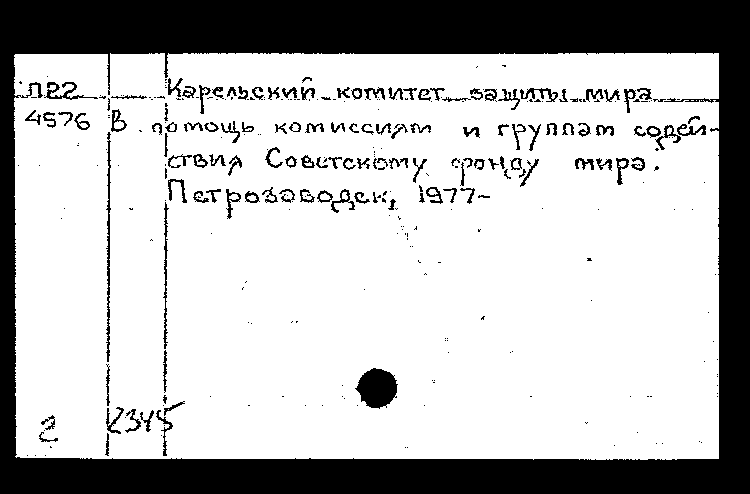 П22 Карельский комитет защиты мира
4576 В помощь комиссиям и группам содей-
ствия Советскому фонду мира.
Петрозаводск, 1977-
2 2345